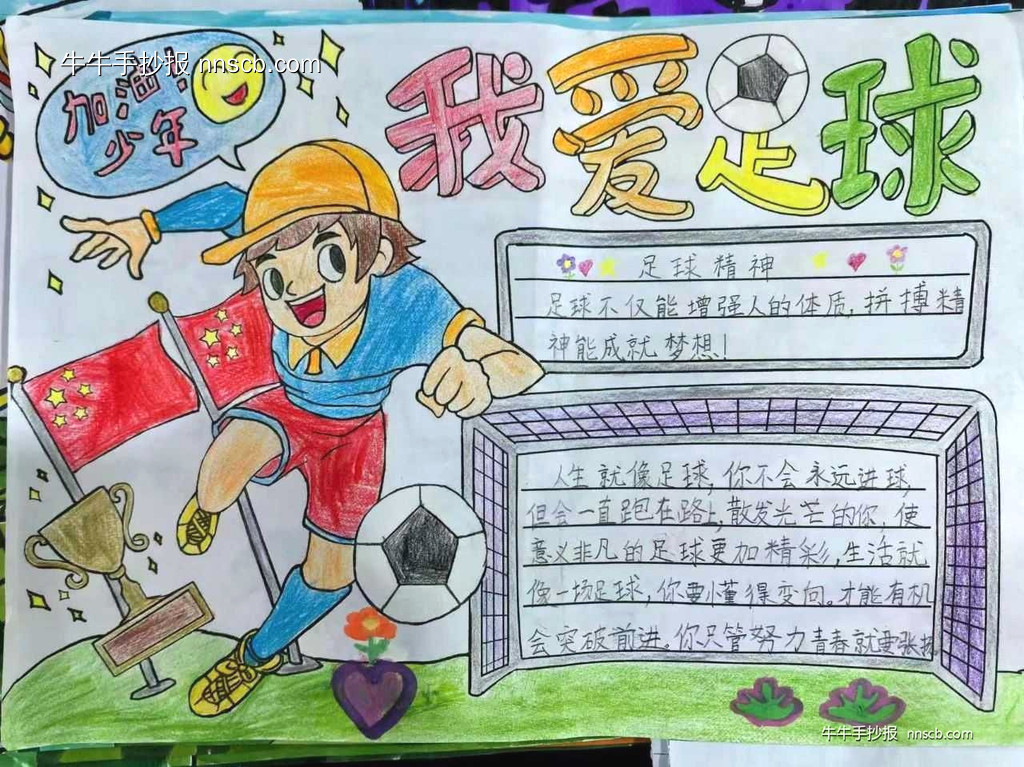 牛牛手抄报 nnscb.com
加油！
少年
我爱足球
足球精神
足球不仅能增强人的体质，拼搏精
神能成就梦想！
人生就像足球，你不会永远进球，
但会一直跑在路上，散发光芒的你，使
意义非凡的足球更加精彩，生活就
像一场足球，你要懂得变向。才能有机
会突破前进。你只管努力青春就要张扬
牛牛手抄报 nnscb.com